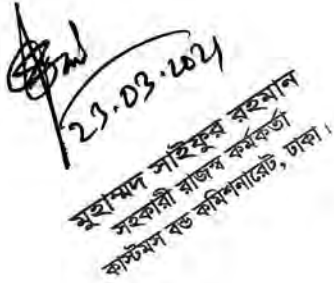 23.03.2021
মুহাম্মদ সাইফুর রহমান
সহকারী রাজস্ব কর্মকর্তা
কাস্টমস বন্ড কমিশনারেট, ঢাকা।